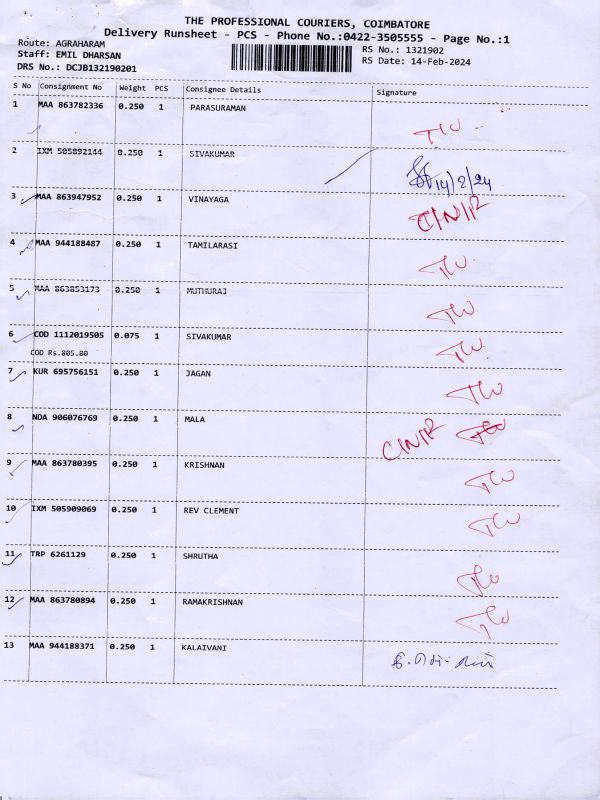 THE PROFESSIONAL COURIERS, COIMBATORE
Delivery Runsheet - PCS - Phone No.:0422-3505555 - Page No.:1
Route: AGRAHARAM RS No.: 1321902
Staff: EMIL DHARSAN RS Date: 14-Feb-2024
DRS No.: DCJB132190201
S No Consignment No Weight PCS Consignee Details Signature
1 MAA 863782336 0.250 1 PARASURAMAN
2 IXM 505892144 0.250 1 SIVAKUMAR 14/2/24
3 MAA 863947952 0.250 1 VINAYAGA
4 MAA 944188487 0.250 1 TAMILARASI
5 MAA 863853173 0.250 1 MUTHURAJ
6 COD 1112019505 0.075 1 SIVAKUMAR
COD Rs.805.00
7 KUR 695756151 0.250 1 JAGAN
8 NDA 906076769 0.250 1 MALA
9 MAA 863780395 0.250 1 KRISHNAN
10 IXM 505909069 0.250 1 REV CLEMENT
11 TRP 6261129 0.250 1 SHRUTHA
12 MAA 863780894 0.250 1 RAMAKRISHNAN
13 MAA 944188371 0.250 1 KALAIVANI